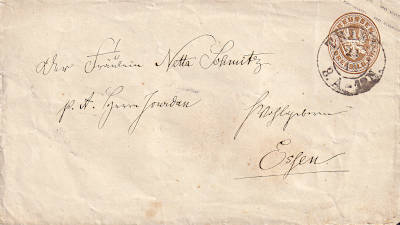 Der Fräulein Netta Schmitz
p. A. Herrn Jourdan
Wohlgeboren
Essen